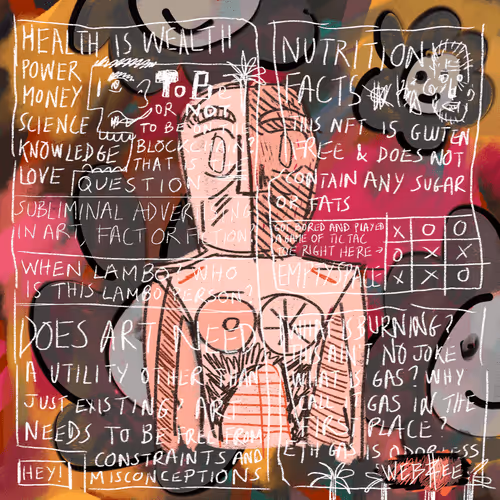 HEALTH IS WEALTH
POWER
MONEY
SCIENCE
KNOWLEDGE
LOVE
To Be
OR NOT
TO BE ON THE
BLOCKCHAIN?
THAT IS THE
QUESTION
SUBLIMINAL ADVERTISING
IN ART FACT OR FICTION?
WHEN LAMBO? WHO
IS THIS LAMBO PERSON?
DOES ART NEED
A UTILITY OTHER THAN
JUST EXISTING? ART
NEEDS TO BE FREE FROM
CONSTRAINTS AND
MISCONCEPTIONS
HEY!
NUTRITION
FACTS
THIS NFT IS GLUTEN
FREE & DOES NOT
CONTAIN ANY SUGAR
OR FATS
GOT BORED AND PLAYED
A GAME OF TIC TAC
TOE RIGHT HERE →
EMPTY SPACE
X O O
O X X
X X O
WHAT IS BURNING?
THIS AIN'T NO JOKE
WHAT IS GAS? WHY
CALL IT GAS IN THE
FIRST PLACE?
ETH GAS IS ODORLESS